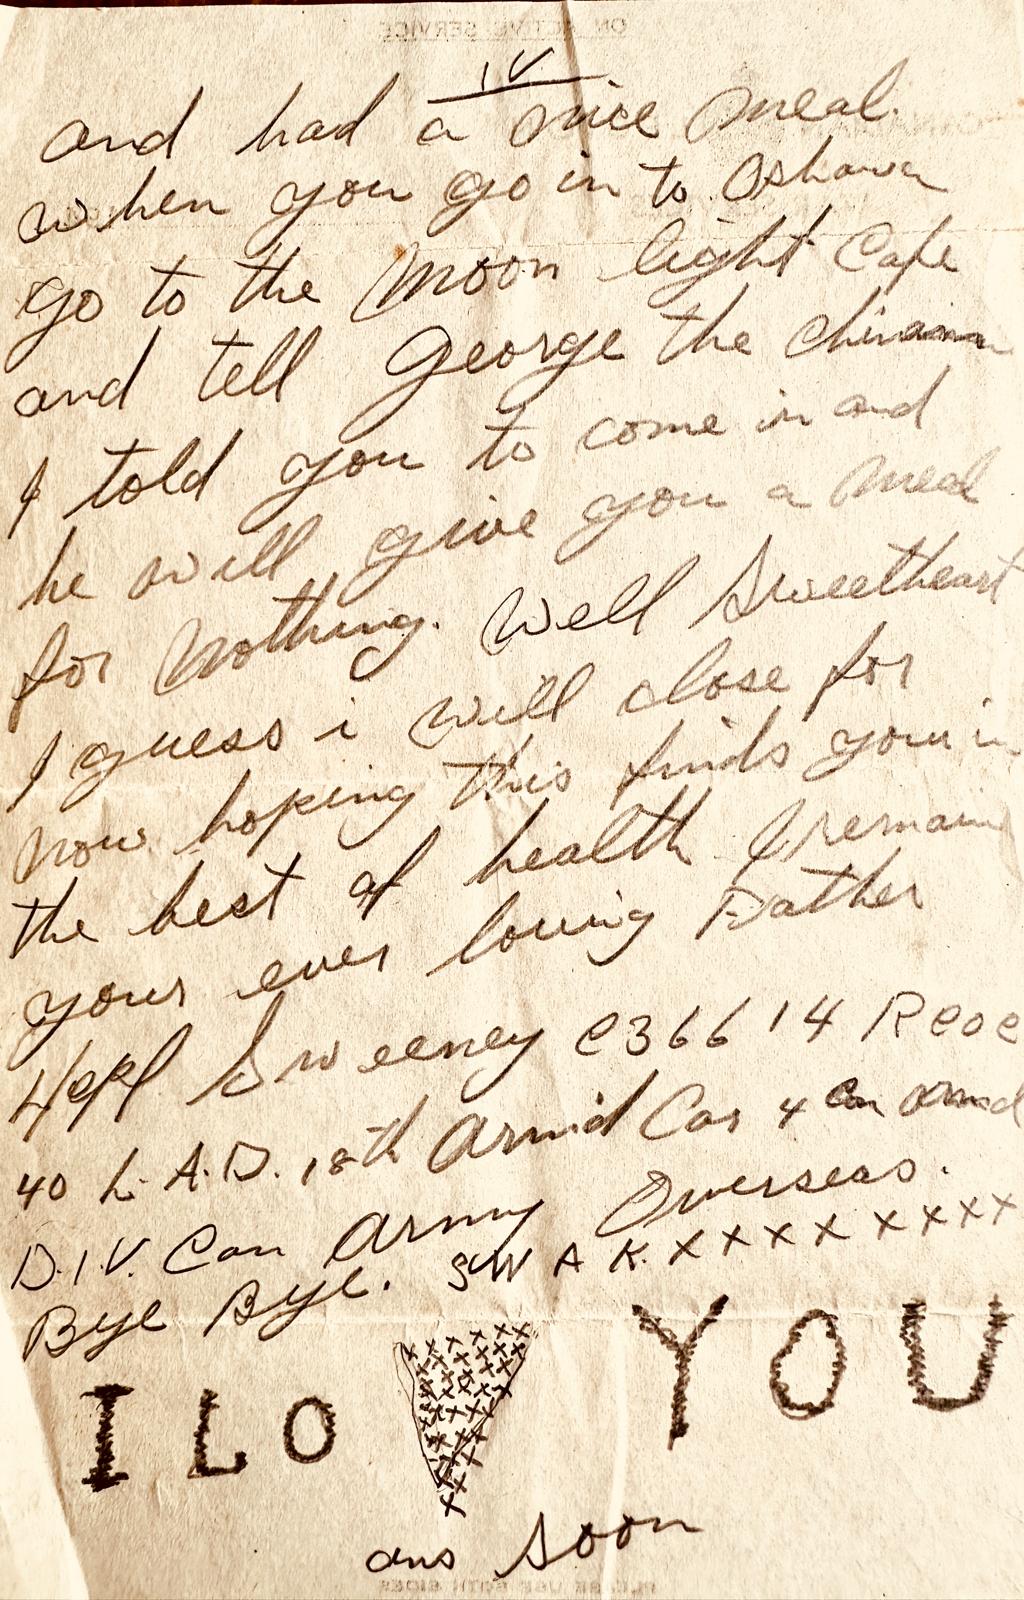 ON ACTIVE SERVICE
IV
and had a nice meal.
when you go in to Oshawa
go to the Moon light Cafe
and tell George the
I told you to come in and
he will give you a meal
for nothing. Well Sweetheart
I guess i will close for
now hoping this finds you in
the best of health I remain
your ever loving Father
Sweeney C36614
40 L.A.D. 18th Armd Car 4 Can armd
D.I.V. Can Army Overseas.
Bye Bye. SWAK. XXXXXXXXX
I LO YOU
ans Soon
PLEASE USE BOTH SIDES